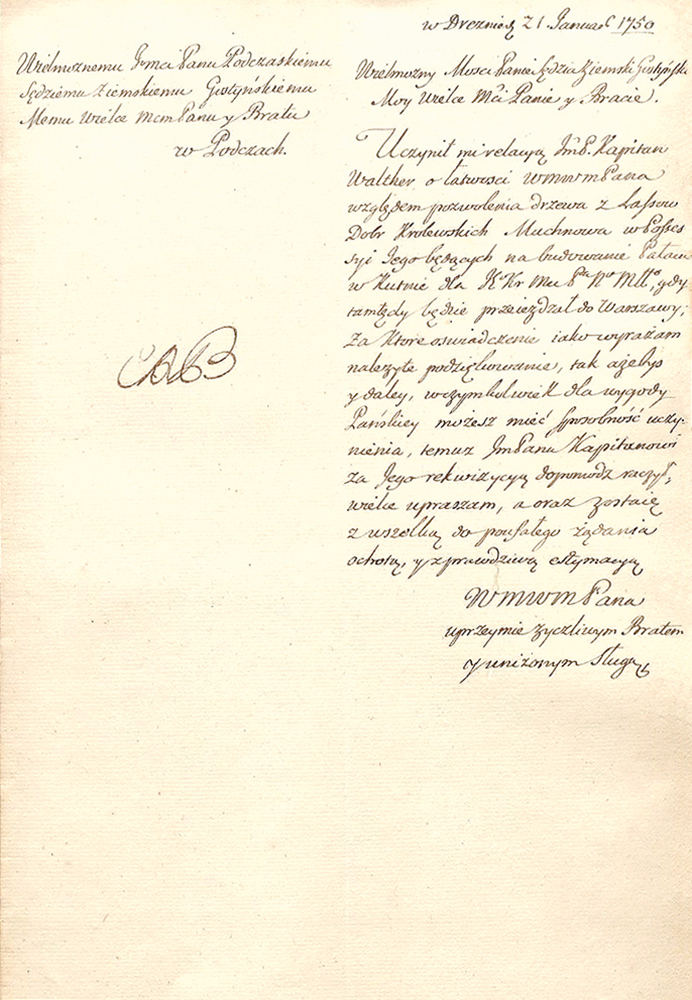 w Dreznie 21 Januar 1750
Wielmoznemu Jmci Panu Podczaskiemu
Sędziemu Ziemskiemu Gostyńskiemu
Memu Wielce Mcm Panu y Bratu
w Podczach.
Wielmozny Mosci Panie Sędzia Ziemski Gostyński
Moy Wielce Mći Panie y Bracie.
Uczynił mi relacyą JmP. Kapitan
Walther o łatwosci WMWMPana
względem pozwolenia drzewa z Lassow
Dobr Krolewskich Muchnowa w Posses
syi Jego będących na budowanie Pałacu
w Kutnie dla Mu Pa No Młło, gdy
tamtędy będzie przeiezdzał do Warszawy;
Za ktore oswiadczenie iako wyrażam
nalezyte podziękowanie, tak ażebys
y daley, w czymkolwiek dla wygody
Pańskiey możesz mieć sposobność uczy-
nienia, temuz JmPanu Kapitanowi
za Jego rekwizycyą dopomodz raczył,
wielce upraszam, a oraz zostaię
z wszelką do poufałego żądania
ochotą, y z prawdziwą estymacyą
WMWMPana
uprzeymie zyczliwym Bratem
y uniżonym Sługą